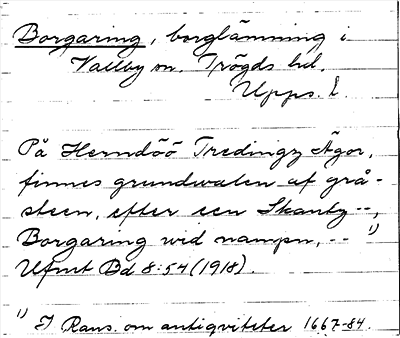 Borgaring, borglämning i
Vallby sn. Trögds hd.
Upps. l.
På Herndöö Tredings Ägor,
finnes grundwalen af grå-
steen, efter een Skantz --,
Borgaring wid nampn, -- 1)
Ufmt Bd 8:54 (1918).
1) I Rans. om antiqviteter 1667-84.